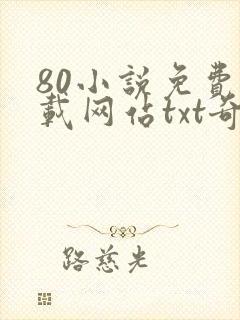 80小説免費
載网佔txt奇
路慈光